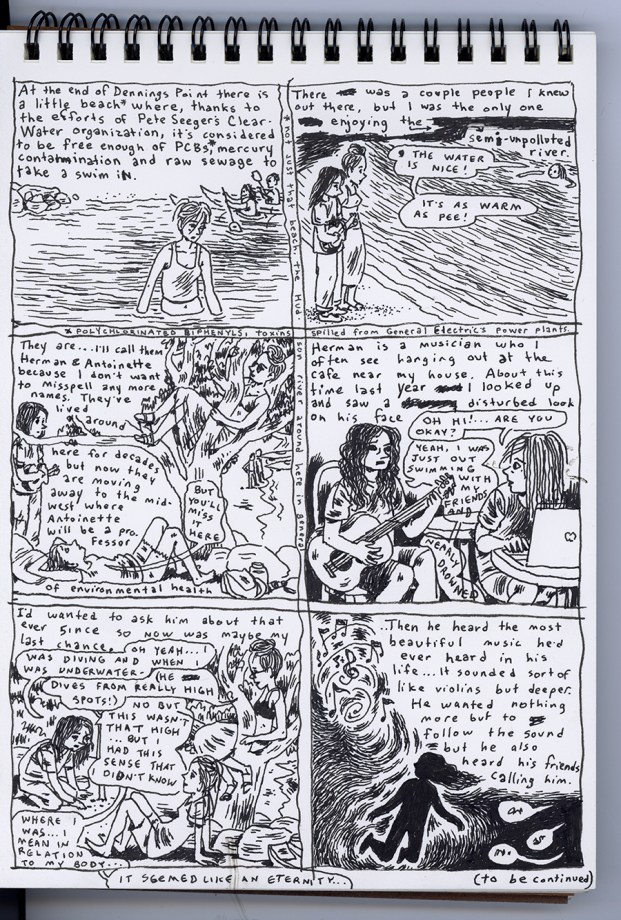 At the end of Dennings Point there is
a little beach* where, thanks to
the efforts of Pete Seeger's Clear-
Water organization, it's considered
to be free enough of PCBs,* mercury
contatmmination and raw sewage to
take a swim iN.
There was a couple people i knew
out there, but I was the only one
enjoying the
semi-unpolluted
river.
THE WATER
IS NICE!
IT'S AS WARM
AS PEE!
* not just that beach, the Hud
son river around here in general
* POLYCHLORINATED BIPHENYLS, toxins
spilled from General Electric's power plants.
They are...I'll call them
Herman & Antoinette
because I don't want
to misspell any more
names. They've
lived
around
here for decades
but now they
are moving
away to the mid-
west where
Antoinette
will be a pro.
fessor
of environmental health
BUT
YOU'LL
MISS
IT
HERE
Herman is a musician who I
often see hanging out at the
cafe near my house. About this
time last year I looked up
and saw a disturbed look
on his face
OH HI!... ARE YOU
OKAY?
YEAH, I WAS
JUST OUT
SWIMMING
WITH
MY
FRIENDS
AND
NEARLY
DROWNED
I'd wanted to ask him about that
ever since so now was maybe my
last chance.
OH YEAH... I
WAS DIVING AND WHEN I
WAS UNDERWATER-
(HE
DIVES FROM REALLY HIGH
SPOTS!)
NO BUT
THIS WASN'T
THAT HIGH
... BUT I
HAD THIS
SENSE THAT
I DIDN'T KNOW
WHERE I
WAS... I
MEAN IN
RELATION
TO MY BODY...
IT SEEMED LIKE AN ETERNITY...
..Then he heard the most
beautiful music he'd
ever heard in his
life... It sounded sort of
like violins but deeper.
He wanted nothing
more but to
follow the sound
but he also
heard his friends
calling him.
(to be continued)